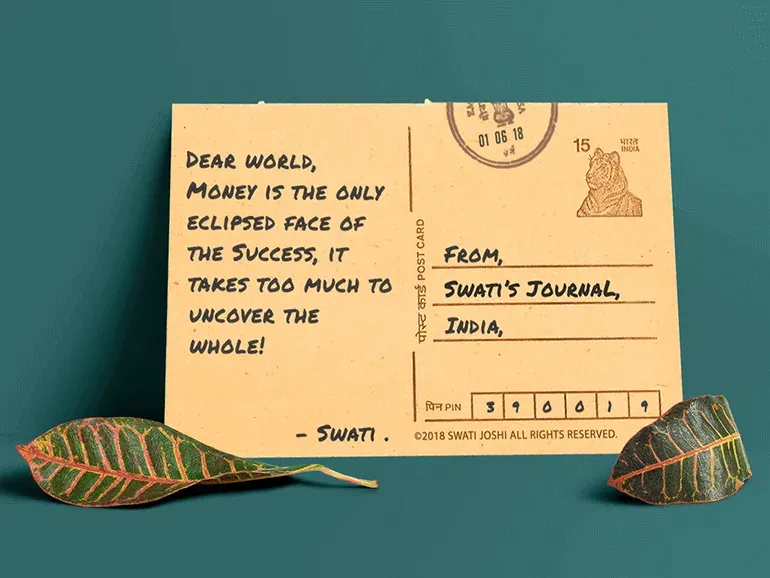 DEAR WORLD,
MONEY IS THE ONLY
ECLIPSED FACE OF
THE SUCCESS, IT
TAKES TOO MUCH TO
UNCOVER THE
WHOLE!
- SWATI .
01 06 18
15 भारत
INDIA
पोस्ट कार्ड POST CARD
FROM,
SWATI'S JOURNAL,
INDIA,
पिन PIN 3 9 0 0 1 9
©2018 SWATI JOSHI ALL RIGHTS RESERVED.